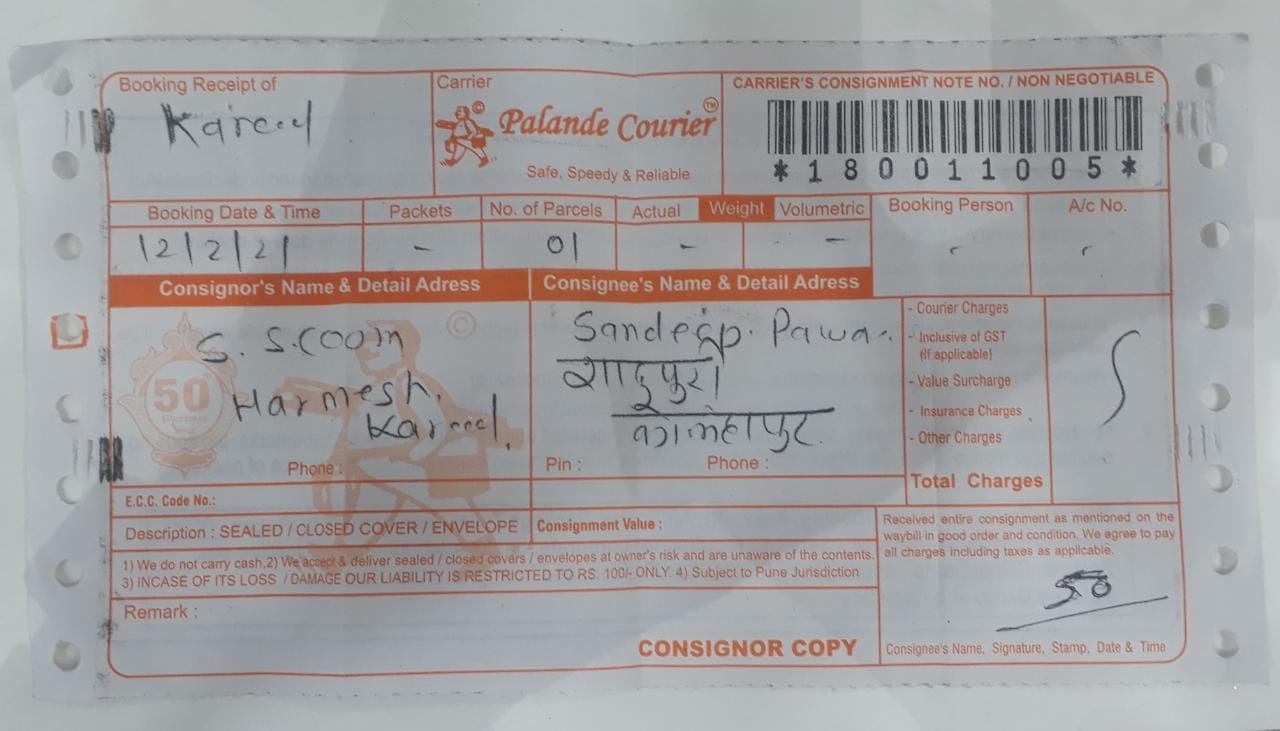 Booking Receipt of
Carrier
CARRIER'S CONSIGNMENT NOTE NO. / NON NEGOTIABLE
Palande Courier™
Safe, Speedy & Reliable
*180011005*
Booking Date & Time Packets No. of Parcels Actual Weight Volumetric Booking Person A/c No.
12/2/21 - 01 - -
Consignor's Name & Detail Adress
Consignee's Name & Detail Adress
S. S.
Harmesh.
50
Phone :
Sandeep. Pawa
Pin : Phone :
- Courier Charges
- Inclusive of GST
(If applicable)
- Value Surcharge
- Insurance Charges
- Other Charges
Total Charges
E.C.C. Code No.:
Description : SEALED / CLOSED COVER / ENVELOPE
Consignment Value :
1) We do not carry cash,2) We accept & deliver sealed / closed covers / envelopes at owner's risk and are unaware of the contents.
3) INCASE OF ITS LOSS / DAMAGE OUR LIABILITY IS RESTRICTED TO RS. 100/- ONLY. 4) Subject to Pune Jurisdiction
Remark :
CONSIGNOR COPY
Received entire consignment as mentioned on the
waybill in good order and condition. We agree to pay
all charges including taxes as applicable.
50
Consignee's Name, Signature, Stamp, Date & Time